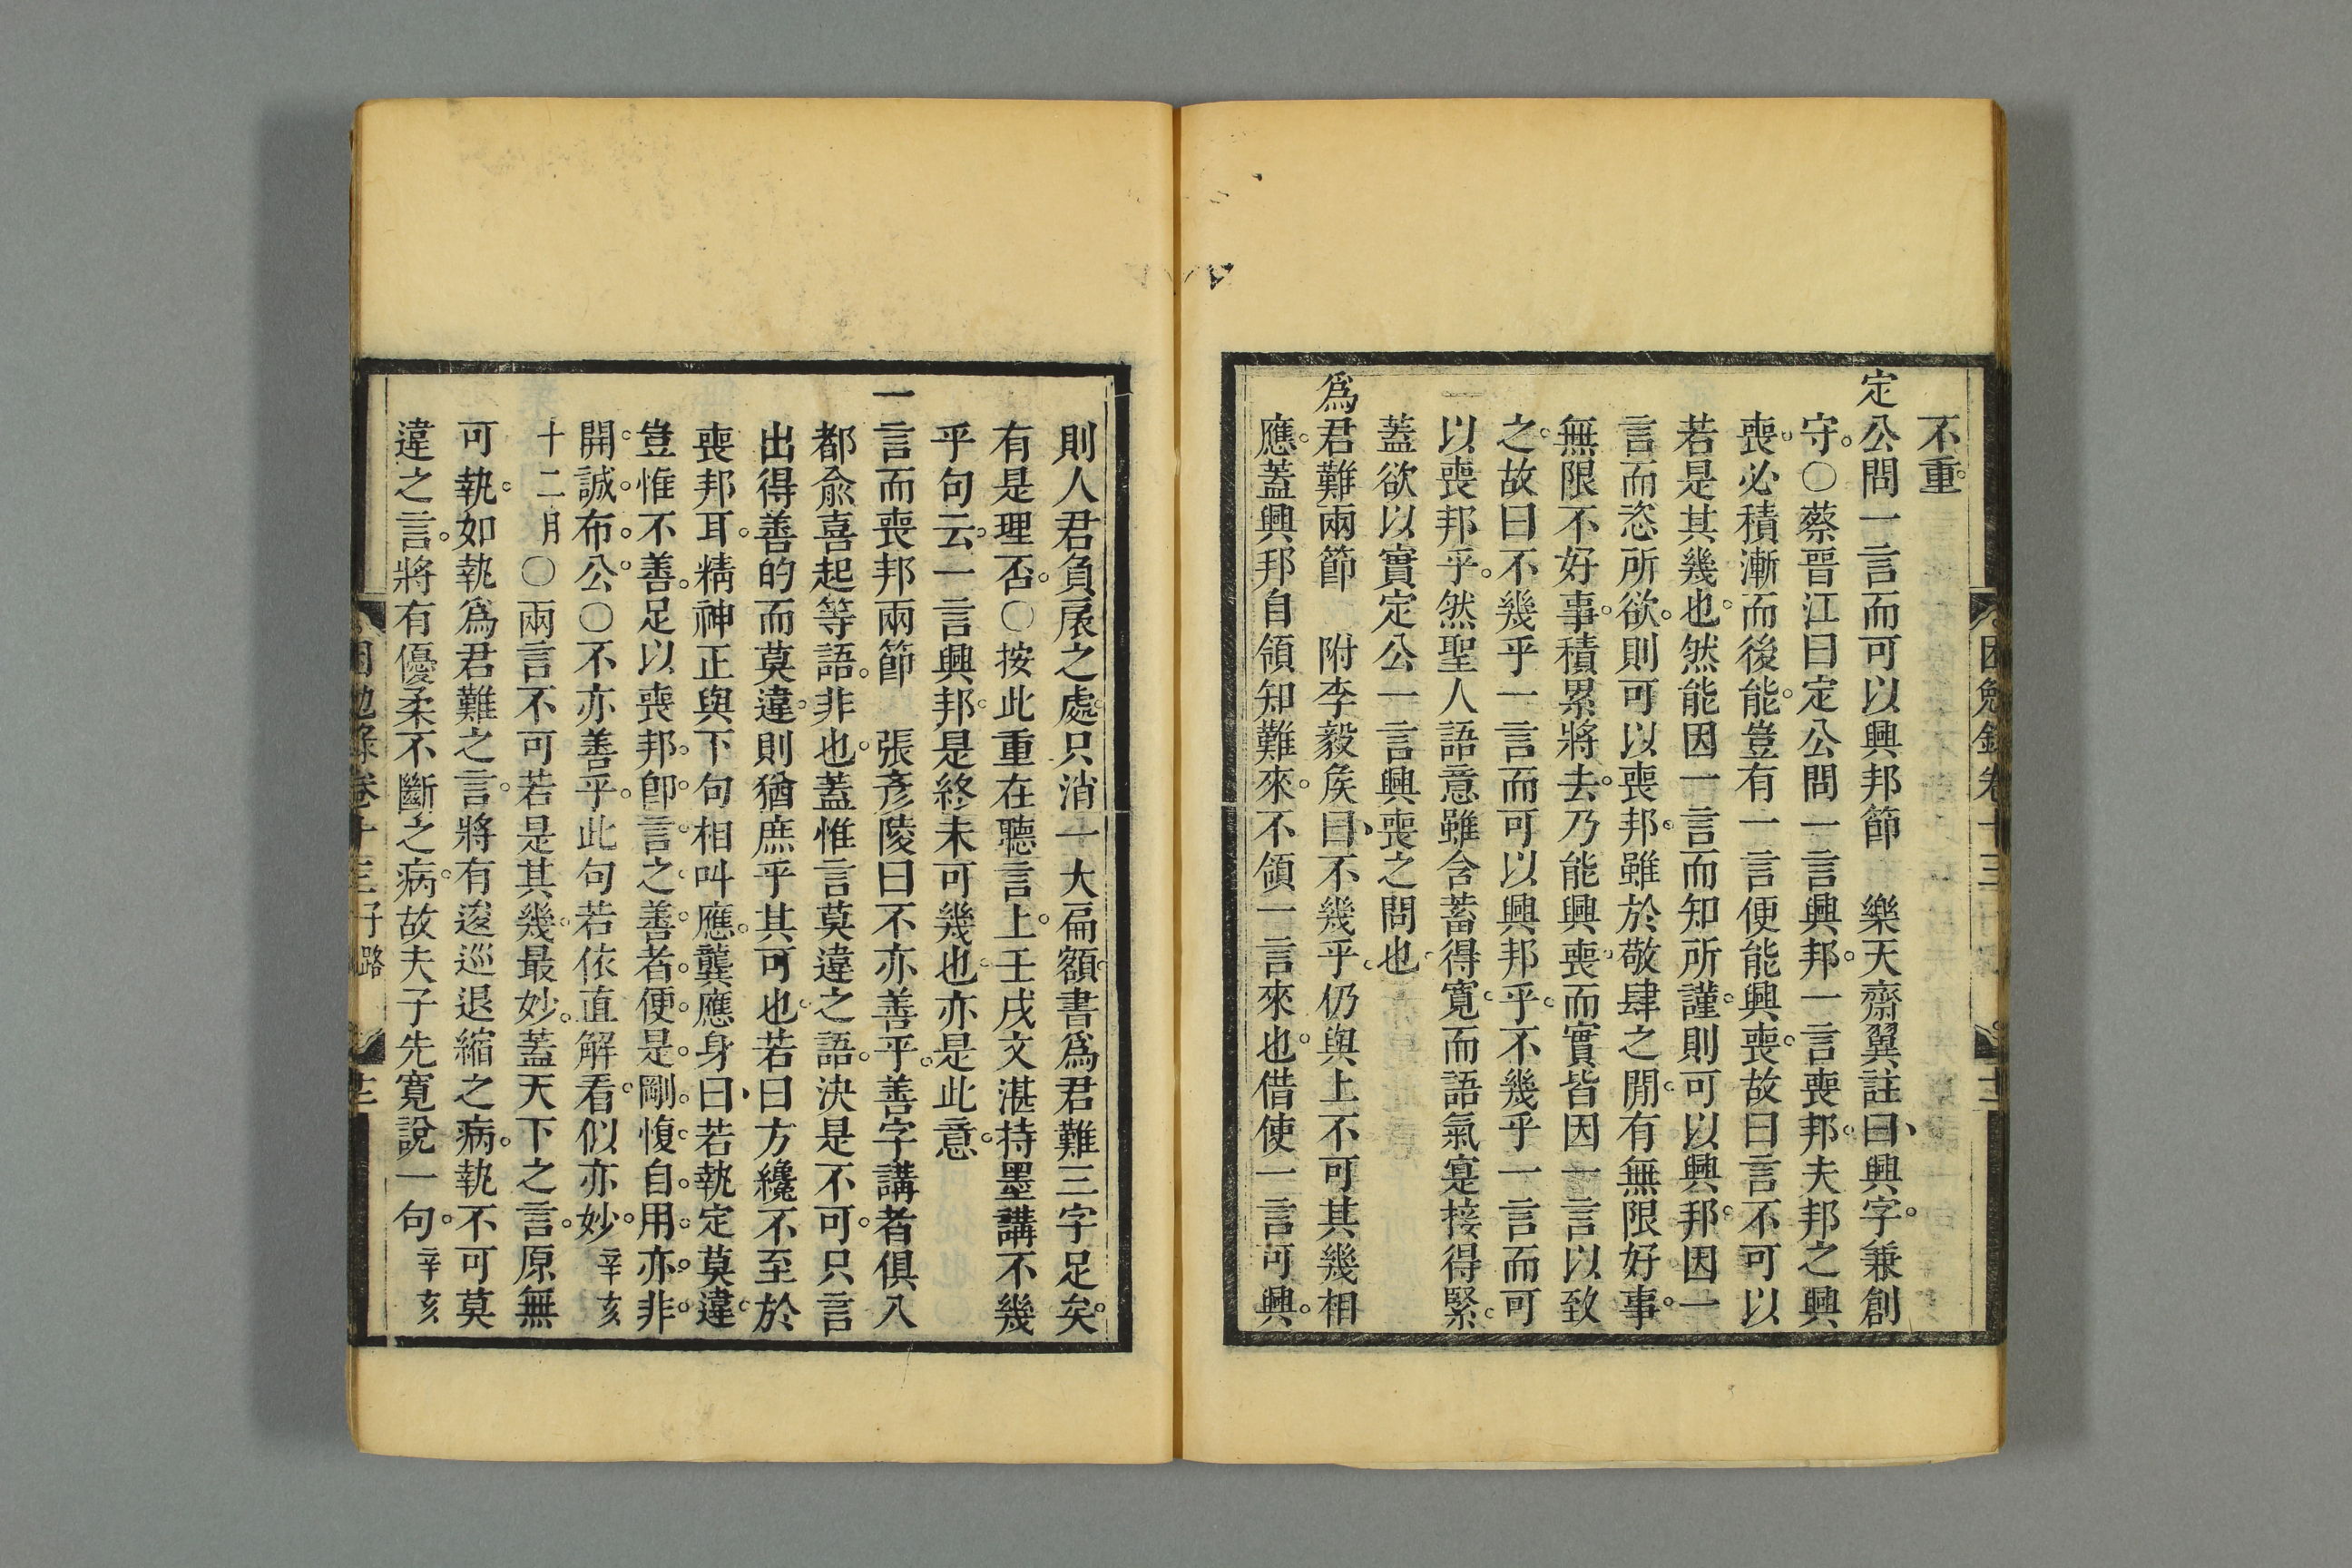 不重
定公問一言而可以興邦節　樂天齋翼註曰興字兼創
守○蔡晉江曰定公問一言興邦一言喪邦夫邦之興
喪必積漸而後能豈有一言便能興喪故曰言不可以
若是其幾也然能因一言而知所謹則可以興邦因一
言而恣所欲則可以喪邦雖於敬肆之閒有無限好事
無限不好事積累將去乃能興喪而實皆因一言以致
之故曰不幾乎一言而可以興邦乎不幾乎一言而可
以喪邦乎然聖人語意雖含蓄得寬而語氣寔接得緊
蓋欲以實定公一言興喪之問也
為君難兩節　附李毅矦曰不幾乎仍與上不可其幾相
應蓋興邦自領知難來不領一言來也借使一言可興
困勉錄卷十三
則人君負扆之處只消一大扁額書為君難三字足矣
有是理否○按此重在聽言上壬戌文湛持墨講不幾
乎句云一言興邦是終未可幾也亦是此意
一言而喪邦兩節　張彥陵曰不亦善乎善字講者俱入
都俞喜起等語非也蓋惟言莫違之語決是不可只言
出得善的而莫違則猶庶乎其可也若曰方纔不至於
喪邦耳精神正與下句相叫應龔應身曰若執定莫違
豈惟不善足以喪邦即言之善者便是剛愎自用亦非
開誠布公○不亦善乎此句若依直解看似亦妙辛亥
十二月○兩言不可若是其幾最妙蓋天下之言原無
可執如執為君難之言將有逡巡退縮之病執不可莫
違之言將有優柔不斷之病故夫子先寬說一句辛亥
困勉錄卷十三子路